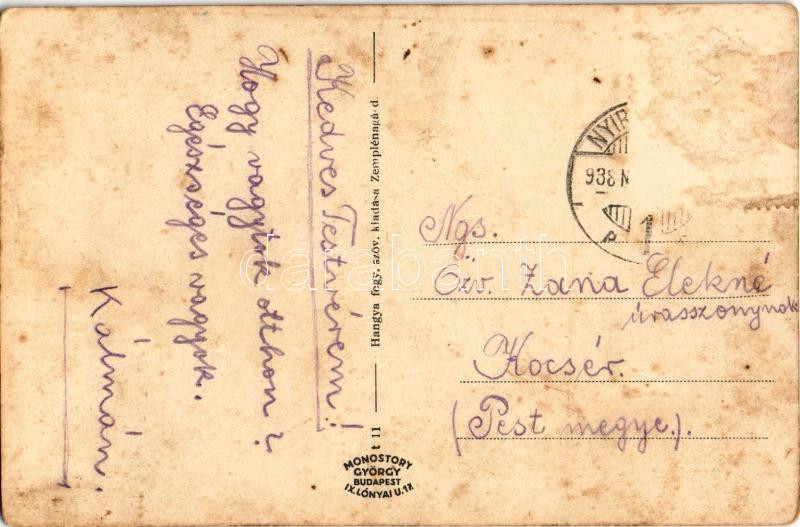 Kedves Testvérem!
Hogy vagytok otthon?
Egészséges vagyok.
Kálmán.
t 11 Hangya fogy. szöv. kiadása Zemplénagárd
MONOSTORY
GYÖRGY
BUDAPEST
IX. LÓNYAI U. 17.
NYIR
938 N
P
1
Ngs.
Özv. Zana Elekné
úrasszonynak
Kocsér.
(Pest megye.).
darabanth